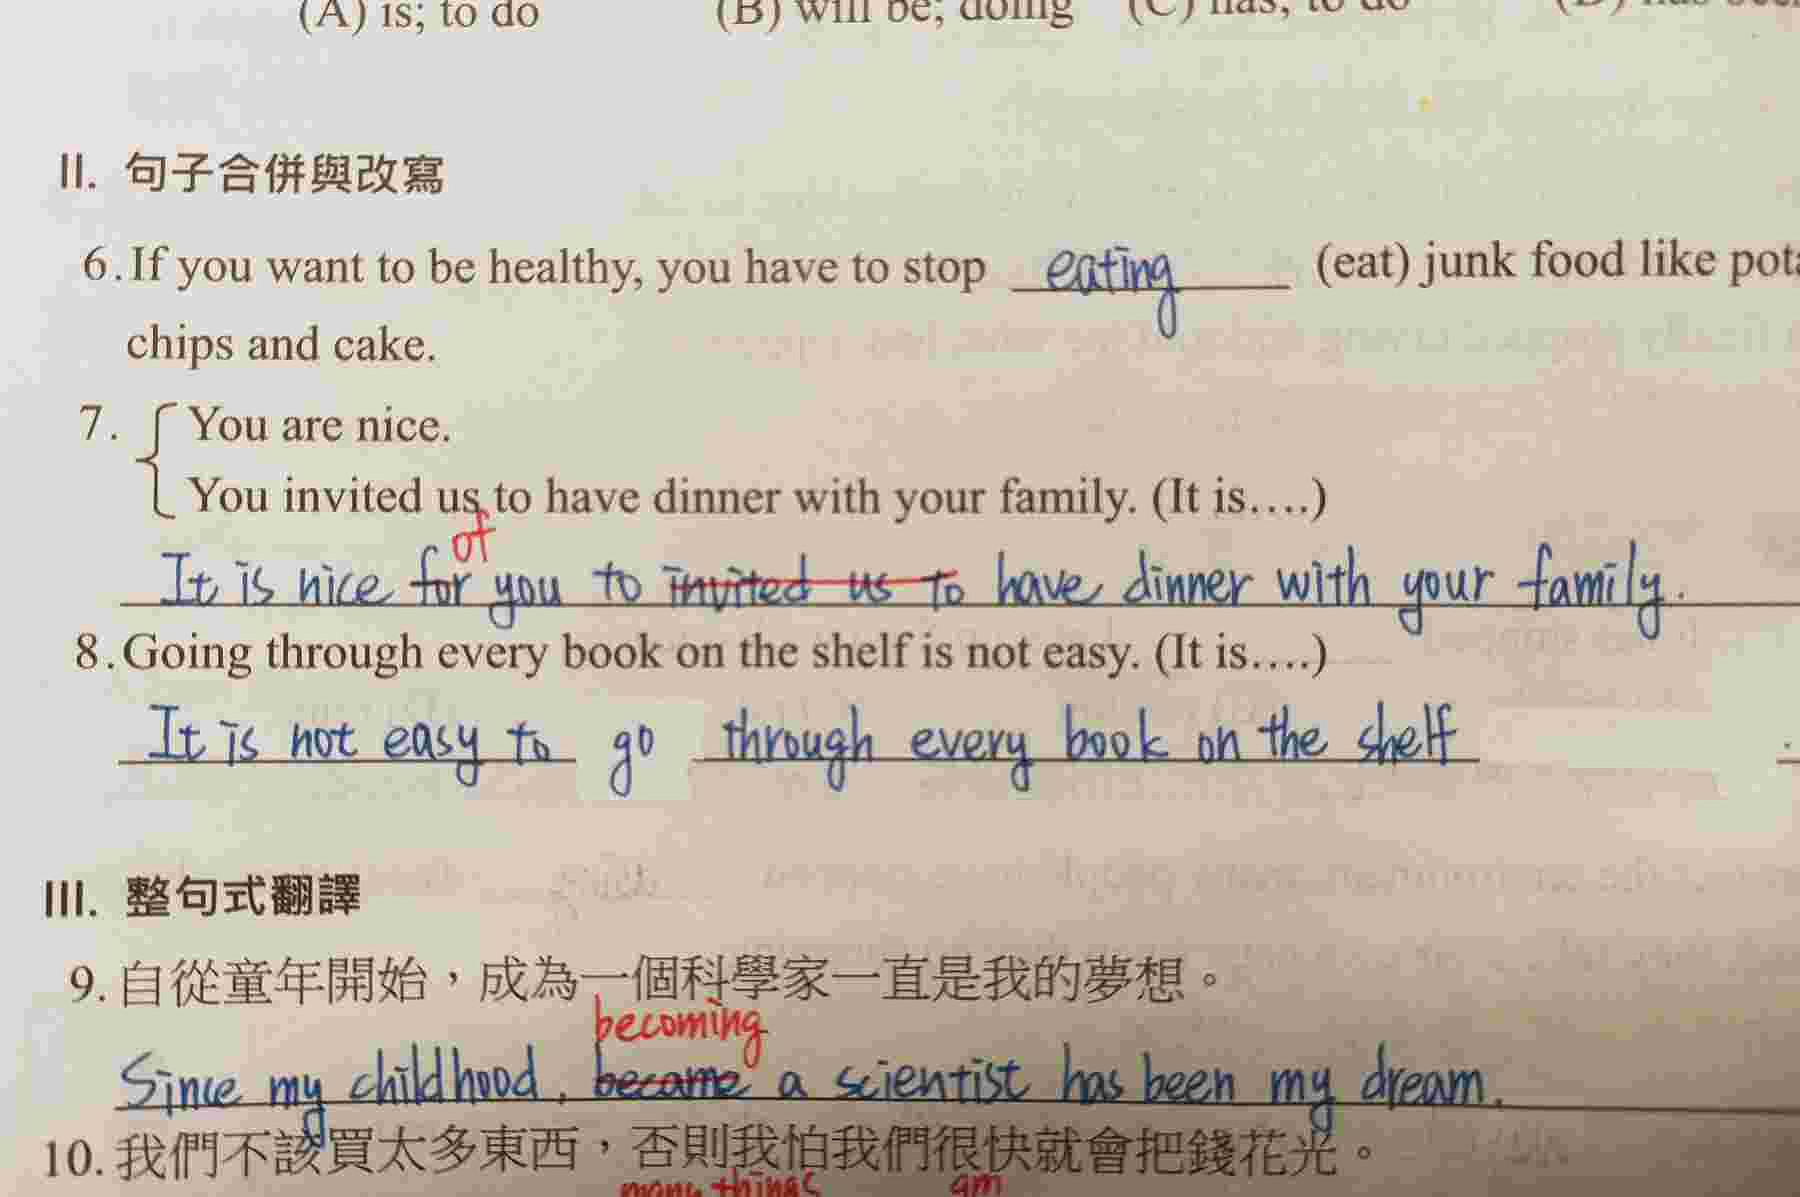 (A) is; to do (B) will be; doing (C) has; to do
II. 句子合併與改寫
6. If you want to be healthy, you have to stop eating (eat) junk food like
chips and cake.
7. You are nice.
You invited us to have dinner with your family. (It is....)
of
It is nice for you to invited us to have dinner with your family.
8. Going through every book on the shelf is not easy. (It is....)
It is not easy to go through every book on the shelf .
III. 整句式翻譯
9. 自從童年開始，成為一個科學家一直是我的夢想。
becoming
Since my childhood, became a scientist has been my dream.
10. 我們不該買太多東西，否則我怕我們很快就會把錢花光。
many things am